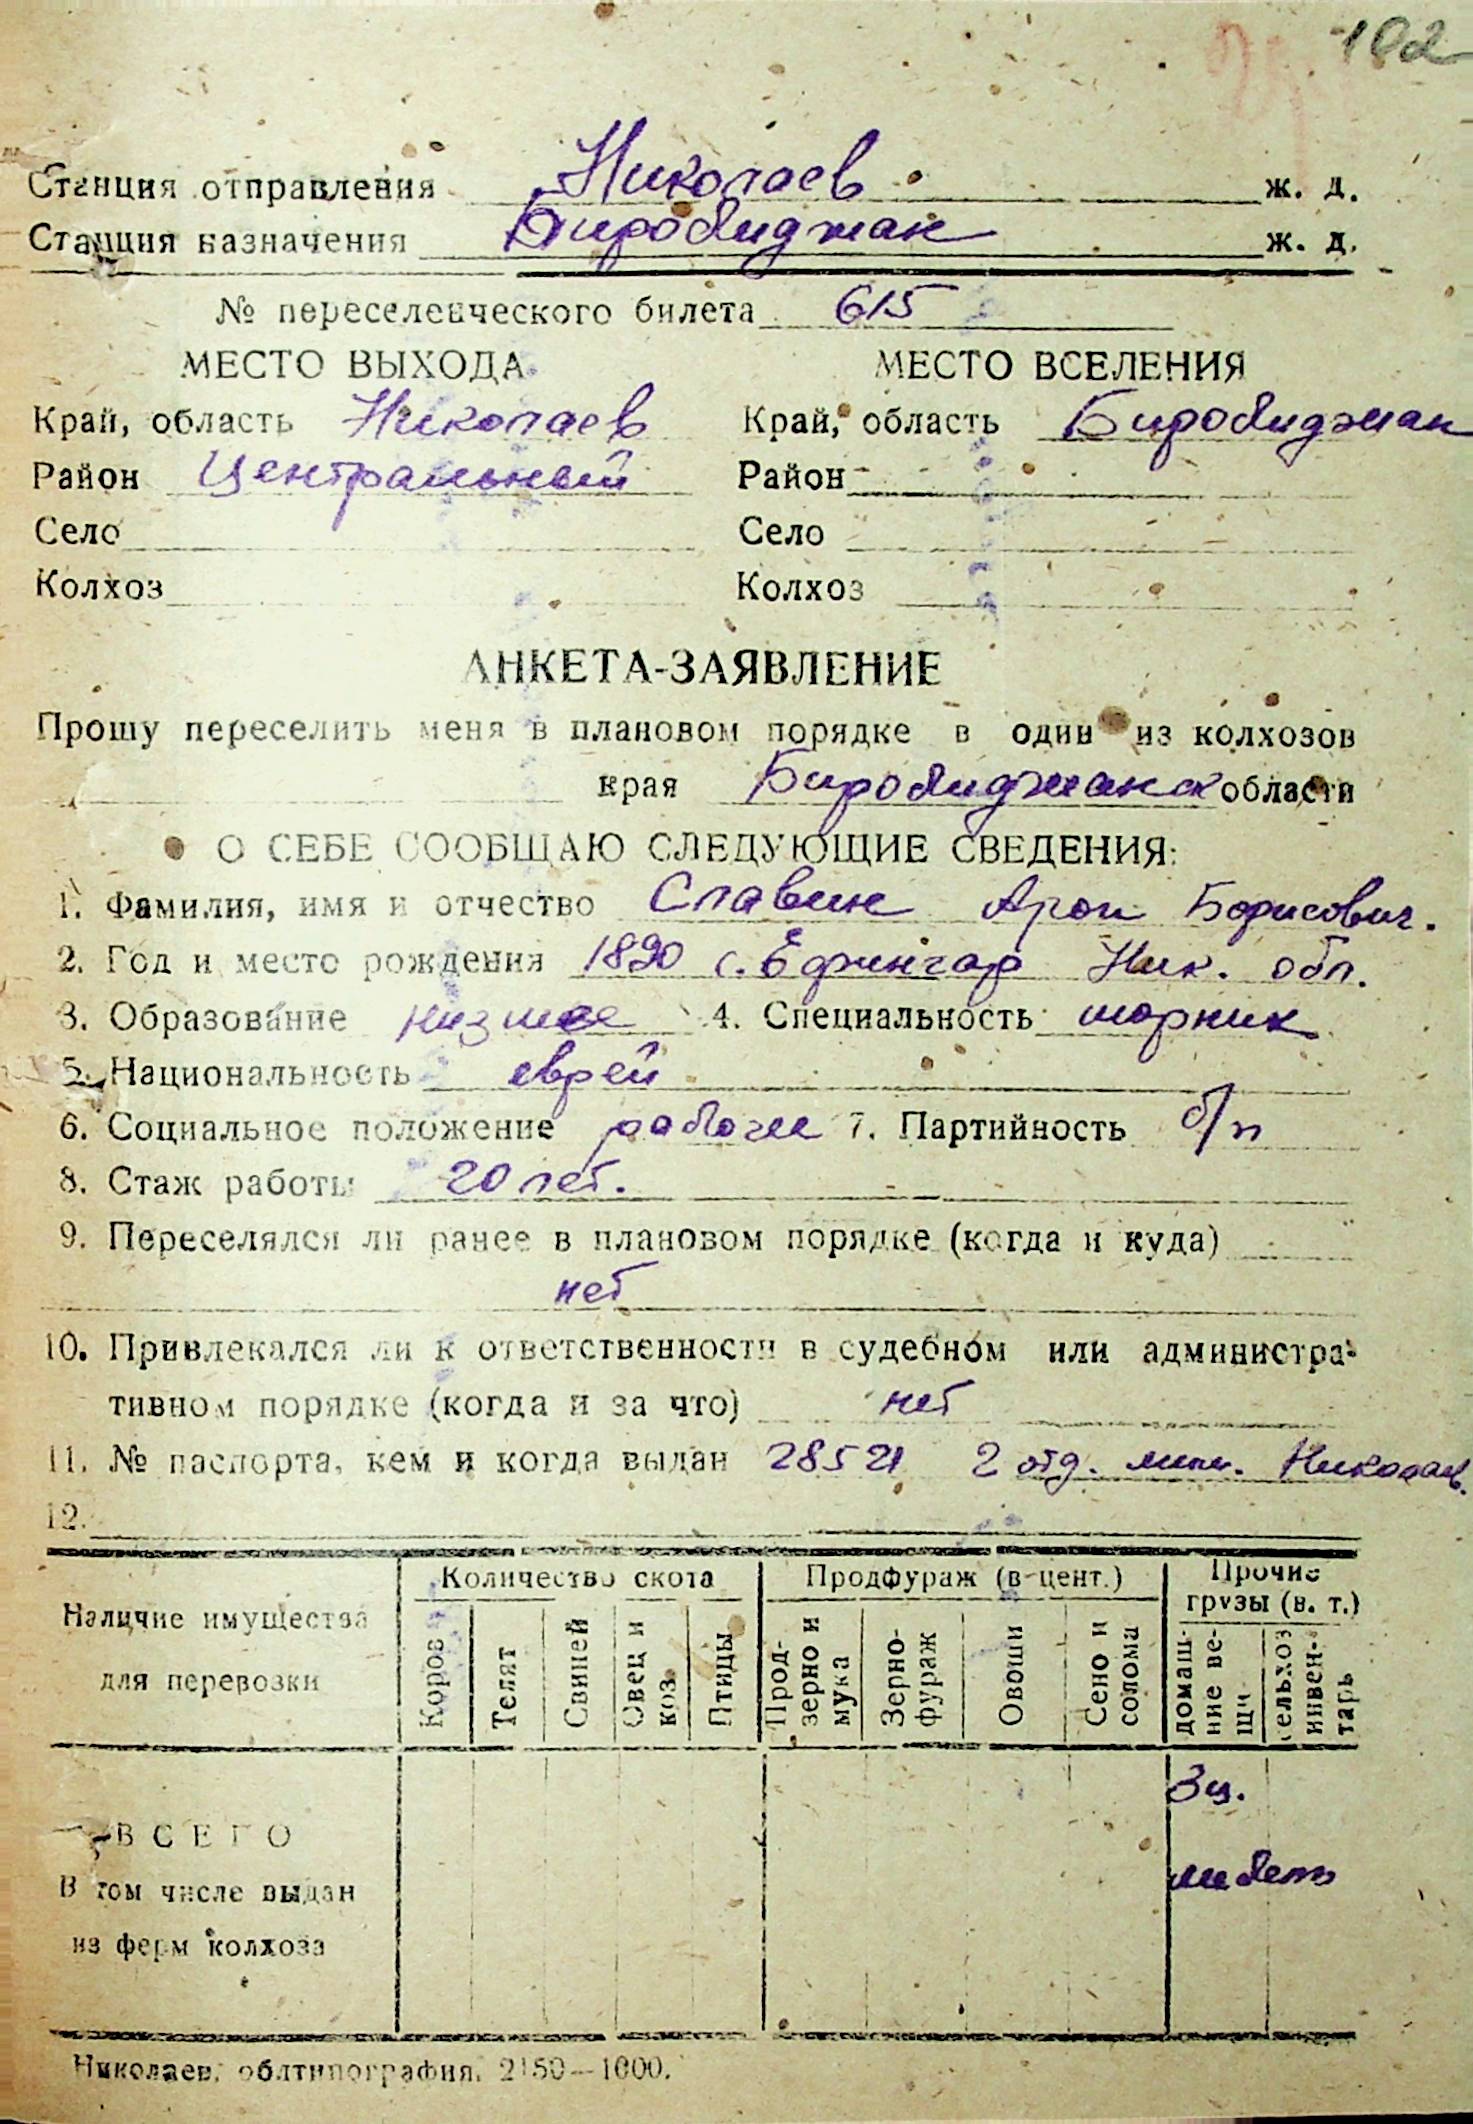 102
Станция отправления Николаев ж. д.
Станция назначения Биробиджан ж. д.
№ переселенческого билета 615
МЕСТО ВЫХОДА МЕСТО ВСЕЛЕНИЯ
Край, область Николаев Край, область Биробиджан
Район Центральный Район
Село Село
Колхоз Колхоз
АНКЕТА-ЗАЯВЛЕНИЕ
Прошу переселить меня в плановом порядке в один из колхозов
края Биробиджанск области
О СЕБЕ СООБЩАЮ СЛЕДУЮЩИЕ СВЕДЕНИЯ:
1. Фамилия, имя и отчество Славин Арон Борисович.
2. Год и место рождения 1890 с. Ефингар Ник. обл.
3. Образование низшее 4. Специальность шорник
5. Национальность еврей
6. Социальное положение рабочий 7. Партийность б/п
8. Стаж работы 20 лет.
9. Переселялся ли ранее в плановом порядке (когда и куда)
нет
10. Привлекался ли к ответственности в судебном или администра-
тивном порядке (когда и за что) нет
11. № паспорта, кем и когда выдан 28521 2 отд. мил. Николаев.
12.
Наличие имущества для перевозки Количество скота Продфураж (в цент.) Прочие грузы (в. т.)
Коров Телят Свиней Овец и коз Птицы Прод-зерно и мука Зерно-фураж Овощи Сено и солома домаш-ние ве-щи сельхоз инвен-тарь
ВСЕГО 3 ц.
В том числе выдан мебель
из ферм колхоза
Николаев, облтипография. 2150—1000.